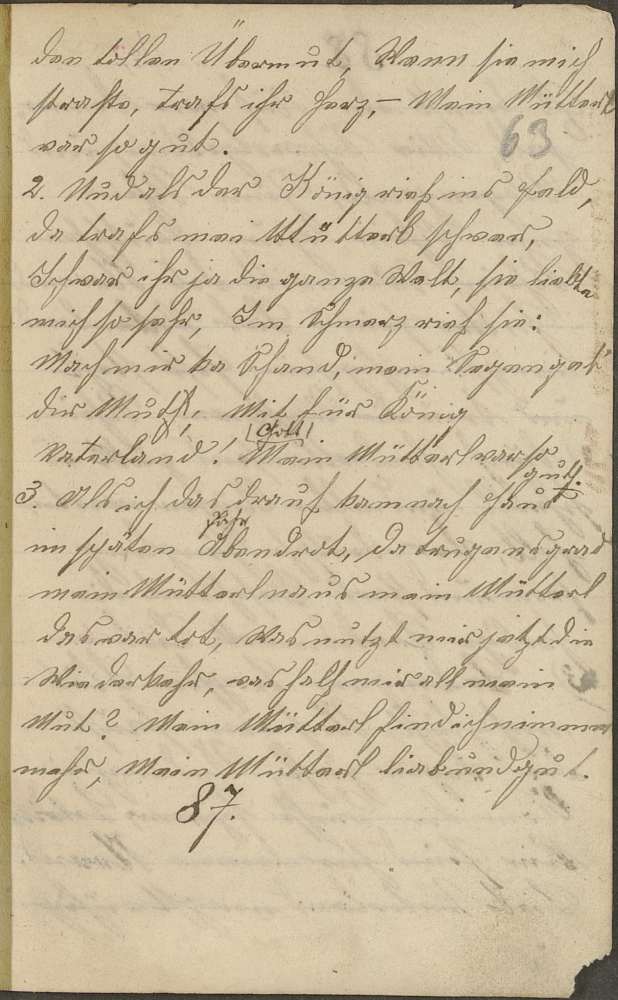 den tollen Übermut, Wenn sie mich
strafte, trafs ihr Herz, – Mein Mütterl
war so gut.
63
2. Und als der König rief ins Feld,
da trafs mei Mütterl schwer,
Ich war ihr ja die ganze Welt, sie liebte
mich so sehr, Im Schmerz rief sie:
Mach mir ka Schand, mein Segen geb'
dir Muth, Mit für König
Gott
Vaterland! Mein Mütterl war so
gut.
3. Als ich das drauf kam nach Haus
Jahr
im späten Abendrot, da trugens grad
mein Mütterl naus mein Mütterl
das war tot, Was nutzt mir jetzt die
Wiederkehr, was helf mir all mein
Mut? Mein Mütterl find ich nimmer
mehr, Mein Mütterl lieb und gut.
87.